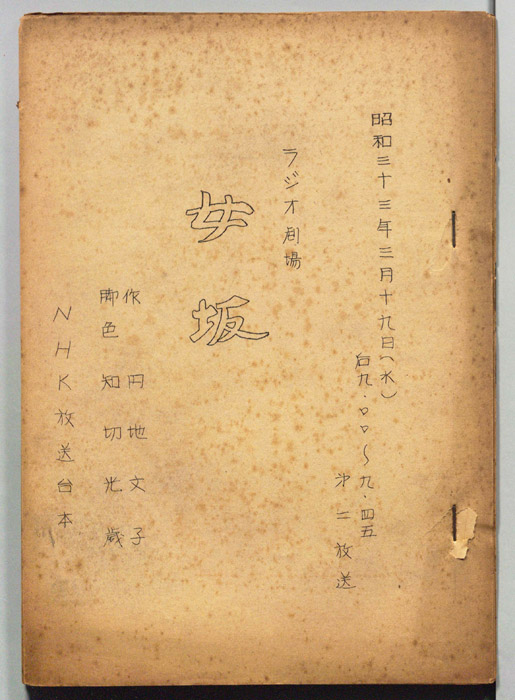 昭和三十三年三月十九日(水)
后九・〇〇〜九・四五
才二放送
ラジオ劇場
女坂
作 円地文子
脚色 知切光歳
NHK放送台本